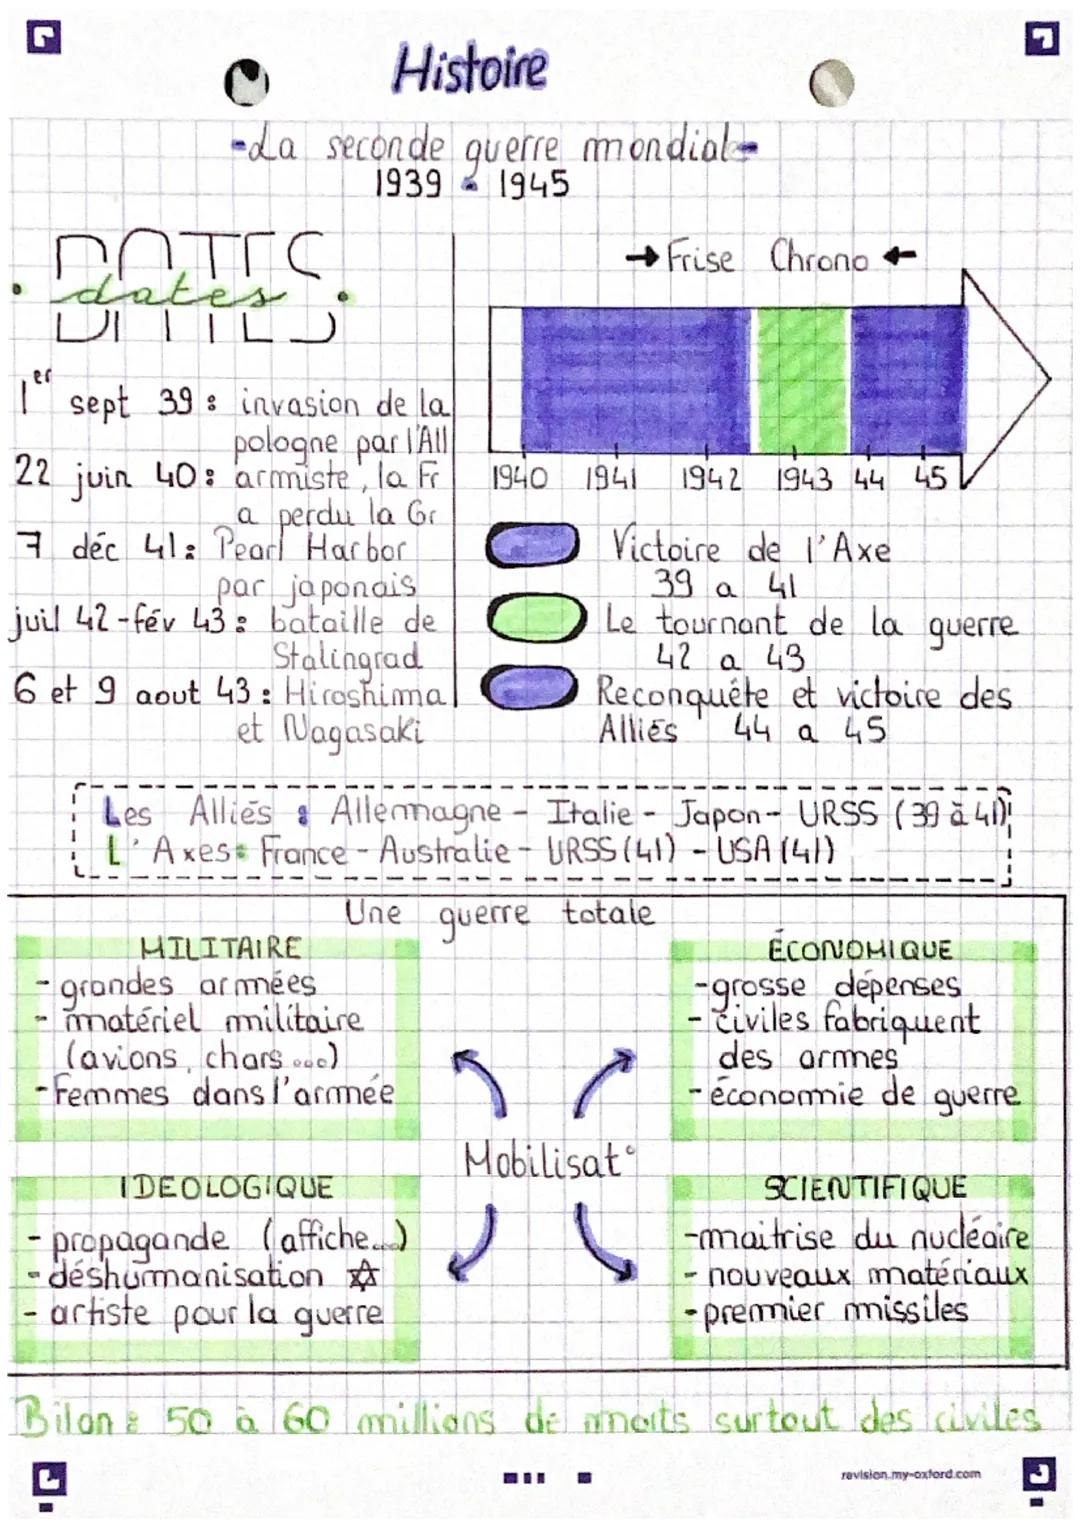 Histoire
-La seconde guerre mondiale-
1939 - 1945
DATES
. dates .
1er sept 39 : invasion de la
pologne par l'All
22 juin 40 : armiste, la Fr
a perdu la Gr
7 déc 41 : Pearl Harbor
par japonais
juil 42 - fév 43 : bataille de
Stalingrad
6 et 9 aout 43 : Hiroshima
et Nagasaki
→ Frise Chrono ←
1940 1941 1942 1943 44 45
Victoire de l'Axe
39 a 41
Le tournant de la guerre
42 a 43
Reconquête et victoire des
Alliés 44 a 45
Les Alliés : Allemagne - Italie - Japon - URSS (39 à 41)
L'Axes : France - Australie - URSS (41) - USA (41)
Une guerre totale
MILITAIRE
- grandes armées
- matériel militaire
(avions, chars ...)
- Femmes dans l'armée
ÉCONOMIQUE
- grosse dépenses
- civiles fabriquent
des armes
- économie de guerre
Mobilisat°
IDEOLOGIQUE
- propagande (affiche...)
- déshumanisation ✡
- artiste pour la guerre
SCIENTIFIQUE
- maitrise du nucléaire
- nouveaux matériaux
- premier missiles
Bilan : 50 à 60 millions de morts surtout des civiles
revision.my-oxford.com